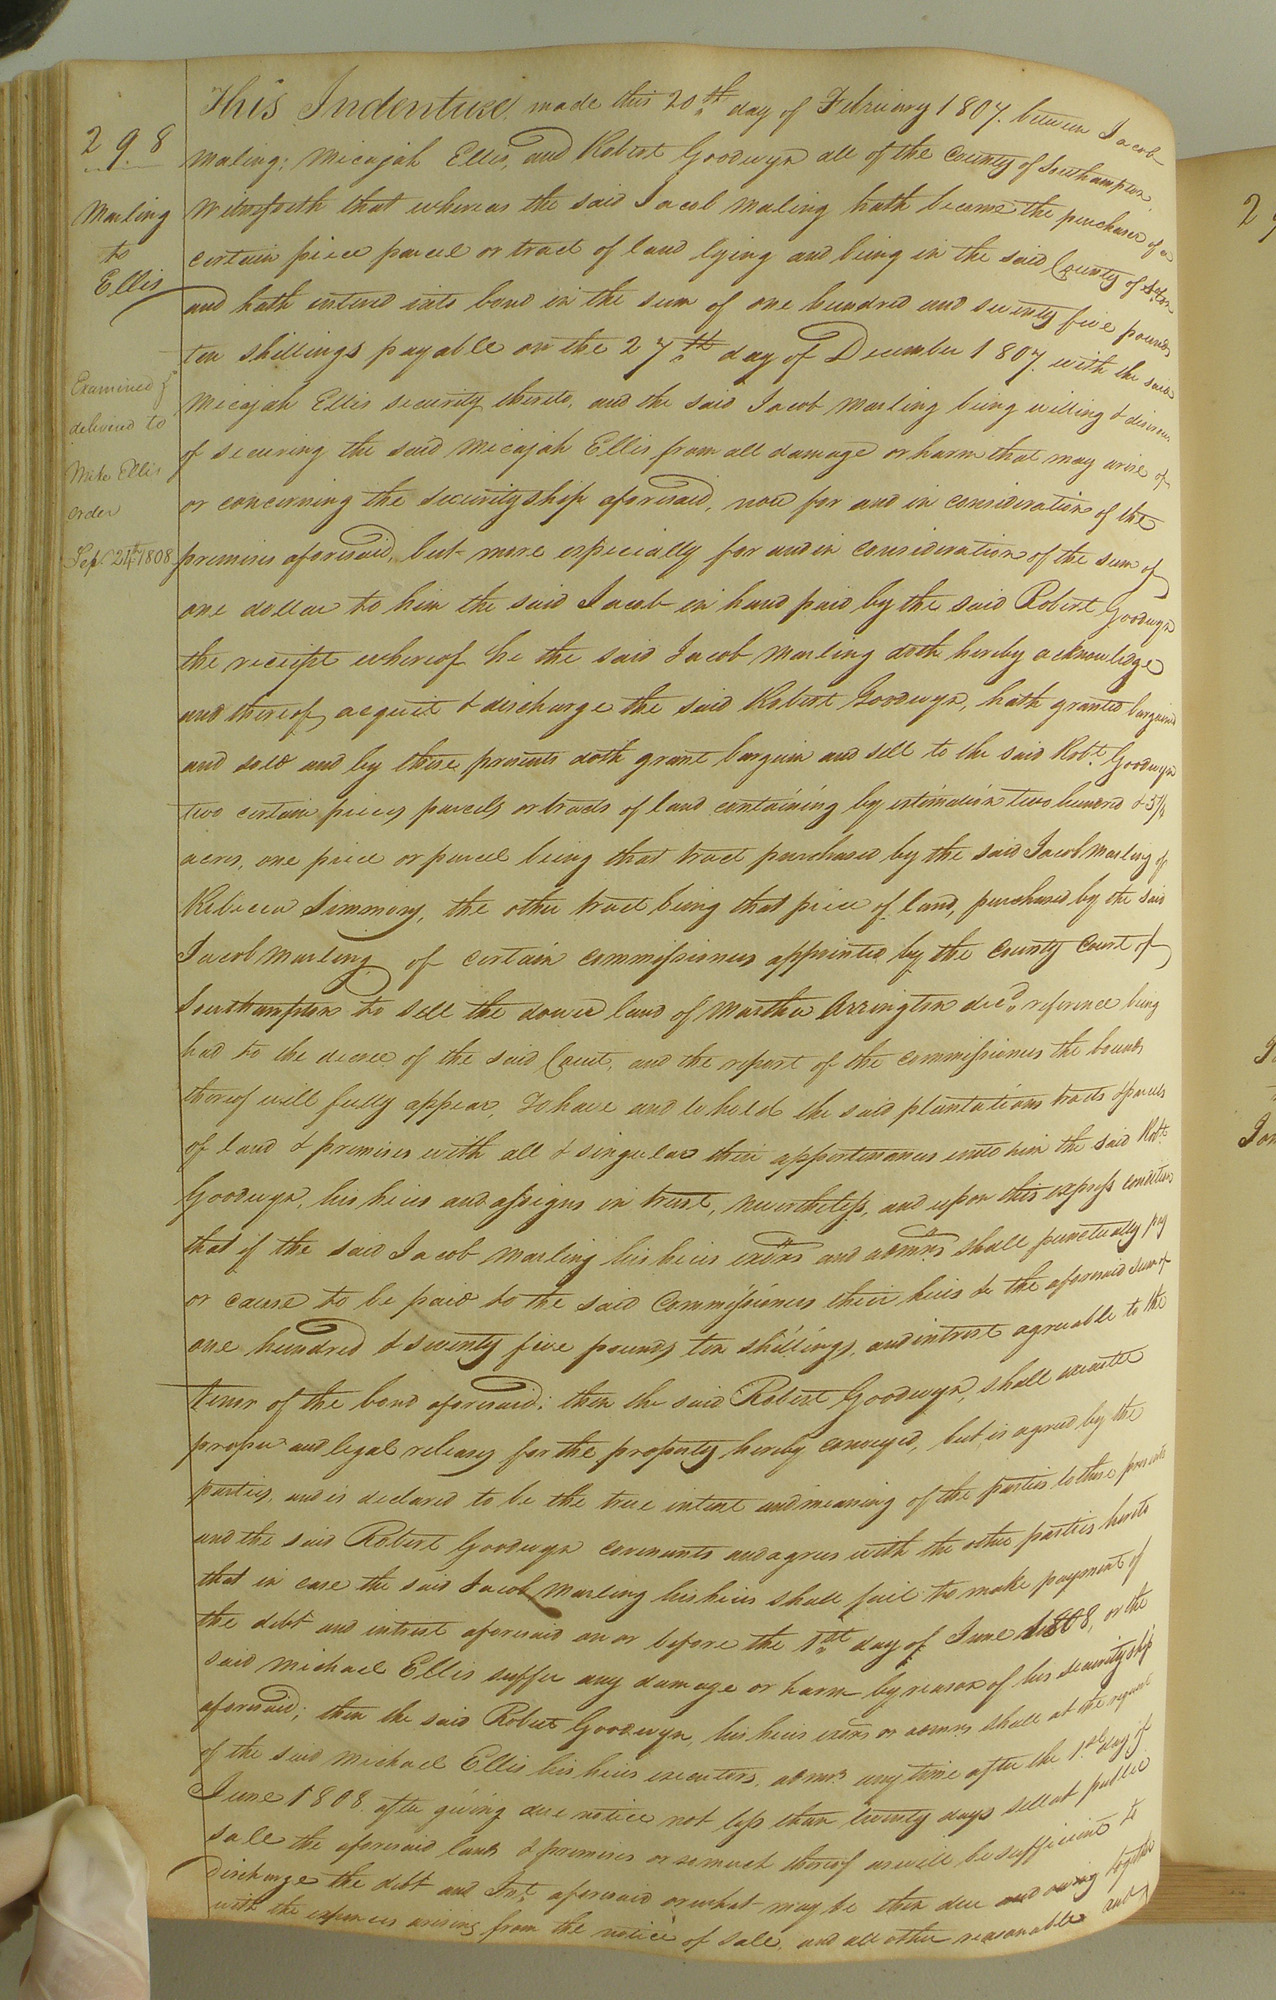 298
Marling
to
Ellis
Examined &
delivered to
Mike Ellis
order
Sept. 24th 1808
This Indenture made this 20th day of February 1807. between Jacob
Maling; Micajah Ellis, and Robert Goodwyn all of the County of Southampton
Witnesseth that whereas the said Jacob Maling hath become the purchaser of a
certain piece parcel or tract of land lying and being in the said County of
and hath entered into bond in the sum of one hundred and seventy five pounds
ten shillings payable on the 27th day of December 1807. with the said
Micajah Ellis security thereto, and the said Jacob Marling being willing & desirous
of securing the said Micajah Ellis from all damage or harm that may arise of
or concerning the securityship aforesaid, now for and in consideration of the
premises aforesaid, but more especially for and in consideration of the sum of
one dollar to him the said Jacob in hand paid by the said Robert Goodwyn
the receipt whereof he the said Jacob Marling doth hereby acknowledge
and thereof acquit & discharge the said Robert Goodwyn, hath granted bargained
and sold and by these presents doth grant bargain and sell to the said Robt. Goodwyn
two certain pieces parcels or tracts of land containing by estimation two hundred &
acres, one piece or parcel being that tract purchased by the said Jacob Marling of
Rebecca Simmons, the other tract being that piece of land, purchased by the said
Jacob Marling of certain commissioners appointed by the County Court of
Southampton to sell the dower land of Martha Arrington decd. reference being
had to the decree of the said Court, and the report of the commissioners the bounds
thereof will fully appear, To have and to hold the said plantations tracts & parcels
of land & premises with all & singular their appertinances unto him the said Robt.
Goodwyn, his heirs and assigns in trust, nevertheless, and upon this express condition
that if the said Jacob Marling his heirs exors and admrs shall punctually pay
or cause to be paid to the said Commissioners their heirs &c the aforesaid sum of
one hundred & seventy five pounds ten shillings, and intrest agreable to the
tenor of the bond aforesaid; then the said Robert Goodwyn, shall execute
proper and legal releases for the property hereby conveyed, but is agreed by the
parties, and is declared to be the true intent and meaning of the parties to these presents
and the said Robert Goodwyn covenants and agrees with the other parties hereto
that in case the said Jacob Marling his heirs shall fail to make payment of
the debt and intrest aforesaid on or before the 1st day of June 1808, or the
said Michael Ellis suffer any damage or harm by reason of his securityship
aforesaid; then the said Robert Goodwyn, his heirs exors or admrs shall at the request
of the said Michael Ellis his heirs executors, admrs any time after the 1st day of
June 1808. after giving due notice not less than twenty days sell at public
sale the aforesaid land & premises or so much thereof as will be sufficient to
discharge the debt and Int. aforesaid or what may be then due and owing together
with the expences arising from the notice of sale, and all other reasonable and